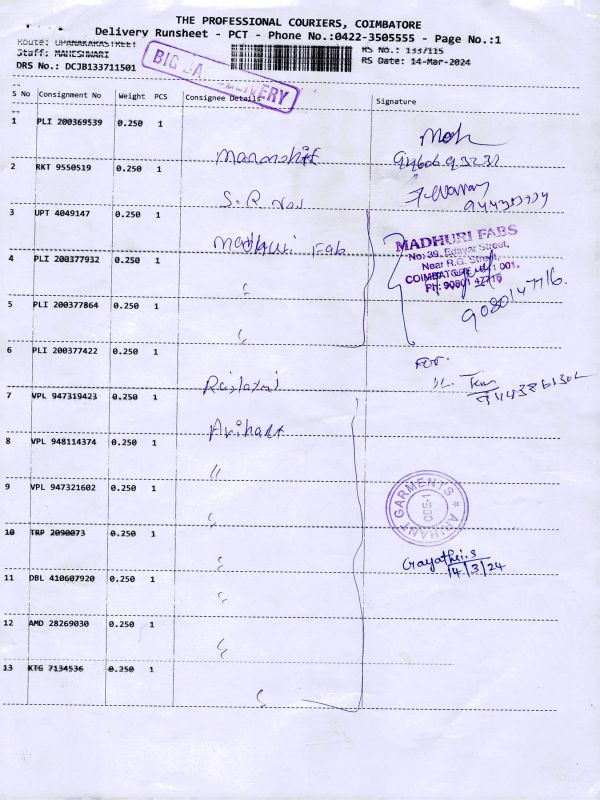 THE PROFESSIONAL COURIERS, COIMBATORE
Delivery Runsheet - PCT - Phone No.:0422-3505555 - Page No.:1
Route: UPANAKARASTREET
Staff: MAHESHWARI
RS No.: 133/115
DRS No.: DCJB133711501
RS Date: 14-Mar-2024
S No Consignment No Weight PCS Consignee Details Signature
1 PLI 200369539 0.250 1
2 RKT 9550519 0.250 1 S.R
3 UPT 4049147 0.250 1 Madhuri Fab
4 PLI 200377932 0.250 1 "
5 PLI 200377864 0.250 1 "
6 PLI 200377422 0.250 1
7 VPL 947319423 0.250 1 Arihant
8 VPL 948114374 0.250 1 "
9 VPL 947321602 0.250 1 "
10 TRP 2090073 0.250 1 "
11 DBL 410607920 0.250 1 "
12 AMD 28269030 0.250 1 "
13 KTG 7134536 0.250 1 "
MADHURI FABS
No: 39, Edayar Street,
Near R.G. Street,
COIMBATORE - 641 001.
Ph: 90801 47716
9080147716.
For.
ARIHANT GARMENTS
CBE-1
Gayathri.S
14/3/24